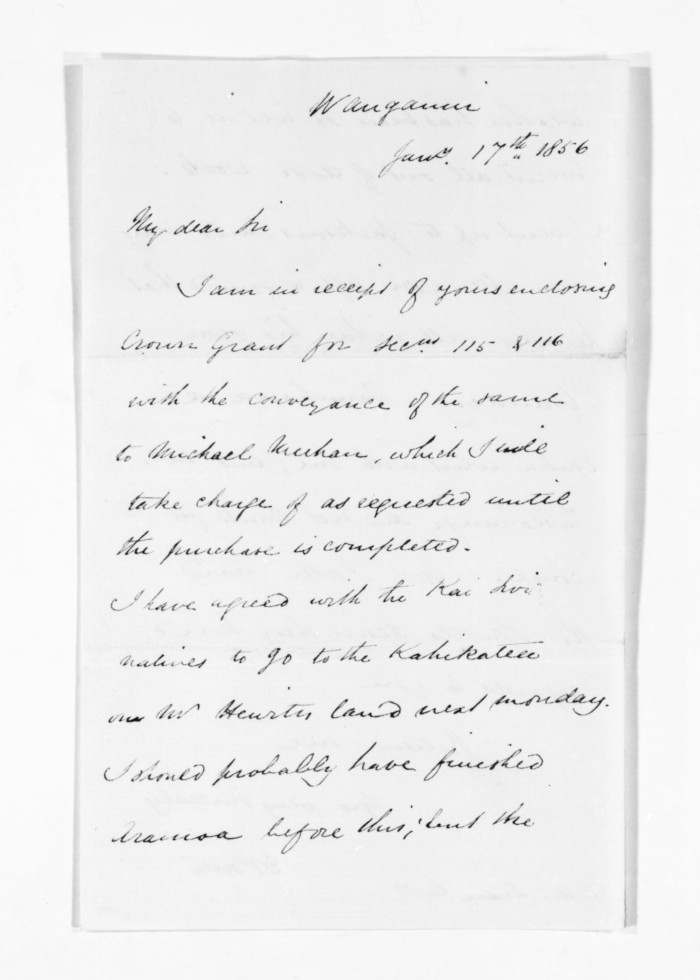 Wanganui
Jany. 17th 1856
My dear Sir
I am in receipt of yours enclosing
Crown Grant for secns 115 & 116
with the conveyance of the same
to Michael Meehan, which I will
take charge of as requested until
the purchase is completed.
I have agreed with the Kai Iwi
natives to go to the Kahikatea
on Mr Hewitts land next monday.
I should probably have finished
Aramoa before this, but the